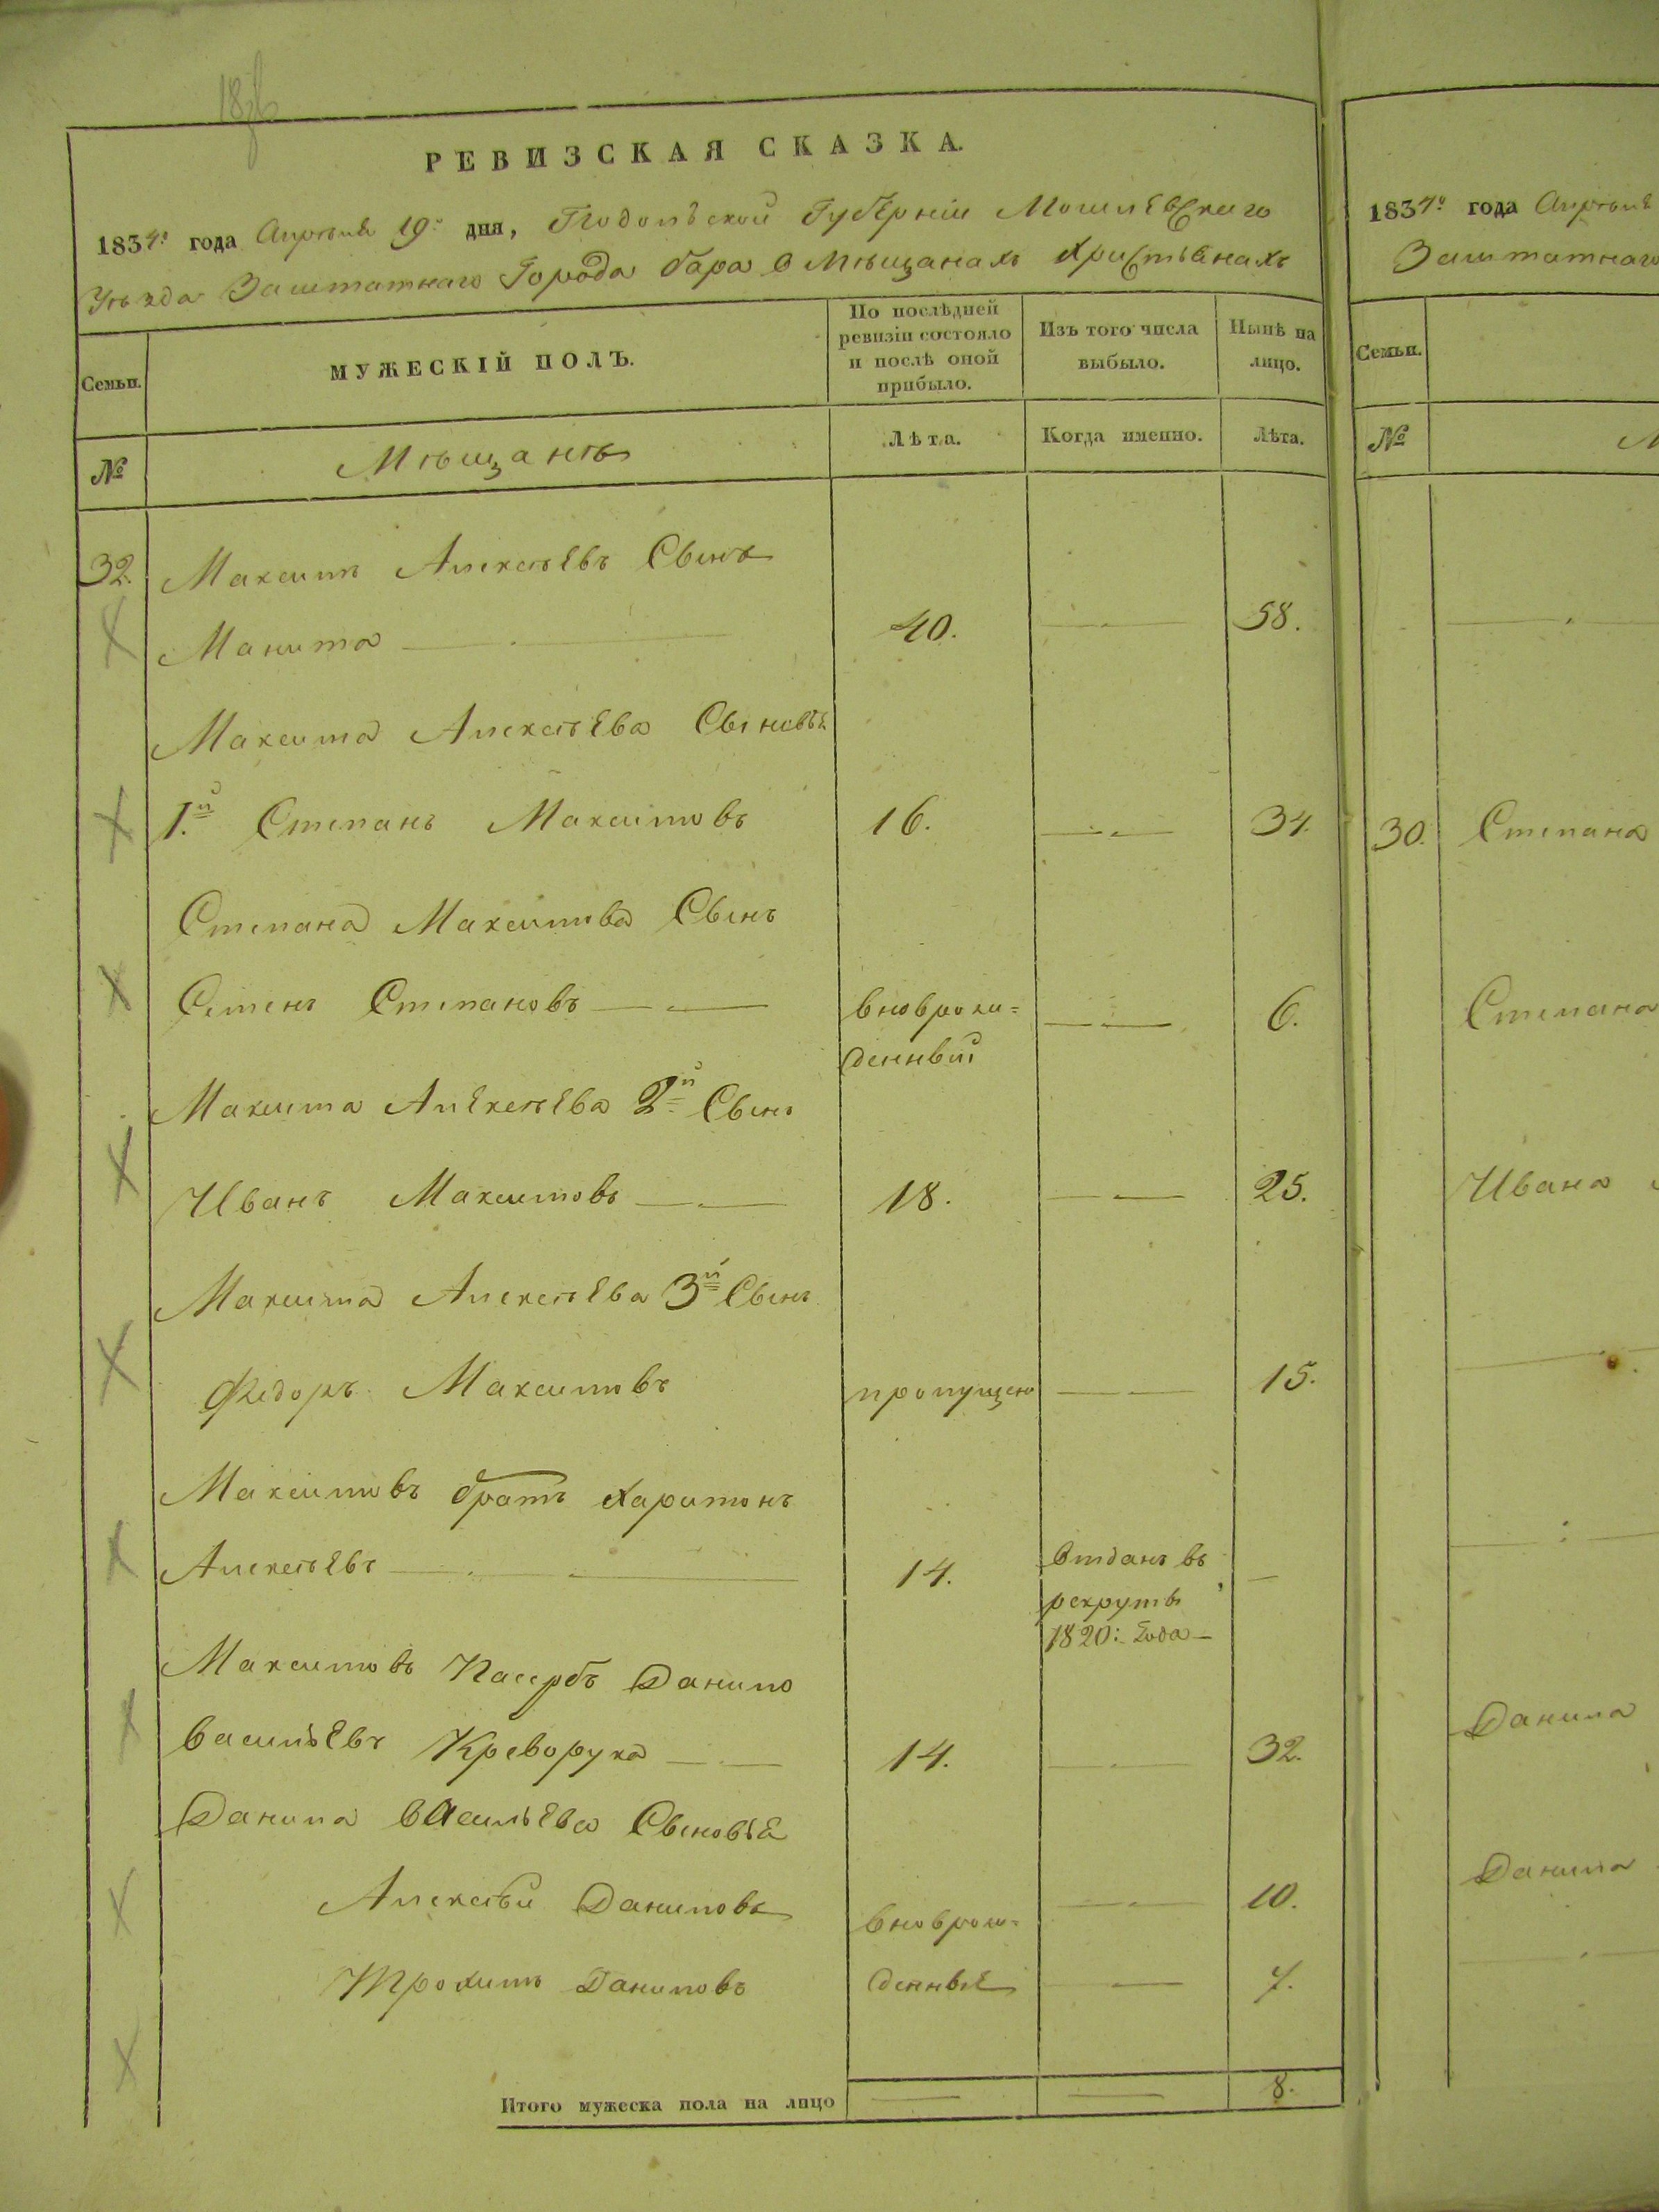 РЕВИЗСКАЯ СКАЗКА.
1834го года Апрѣля 19го дня, Подольской Губерніи Могилевскаго
Уѣзда Заштатнаго Города Бара О Мѣщанахъ Христьянахъ
Семьи.
МУЖЕСКІЙ ПОЛЪ.
По послѣдней ревизіи состояло и послѣ оной прибыло.
Изъ того числа выбыло.
Нынѣ на лицо.
№
Мѣщанѣ
Лѣта.
Когда именно.
Лѣта.
32. Максимъ Алексѣевъ Сынъ
Макита 40. 58.
Максима Алексѣева Сыновья
1.й Степанъ Максимовъ 16. 34.
Степана Максимова Сынъ
Семенъ Степановъ вновьрож= 6.
денный
Максима Алексѣева 2й Сынъ
Иванъ Максимовъ 18. 25.
Максима Алексѣева 3й Сынъ
Федоръ Максимовъ пропущено 15.
Максимовъ братъ Харитонъ
Алексѣевъ 14. Отданъ въ
рекруты
1820: Года
Максимовъ Пасербъ Данило
Васильевъ Креворука 14. 32.
Данила Васильева Сыновья
Алексѣй Даниловъ вновьрож= 10.
Трохимъ Даниловъ денные 7.
Итого мужеска пола на лицо 8.
1834го года Апрѣля
Заштатнаго
Семьи.
№
М
30. Степана
Степана
Ивана
Данила
Данила